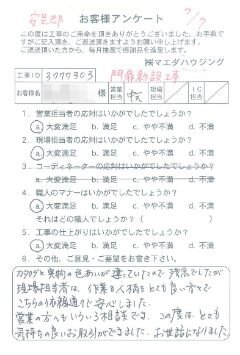 安芸郡 お客様アンケート 7/7
この度は工事のご用命を頂きありがとうございました。お手数で
すがご記入頂き、ご返送頂きますようお願い申し上げます。
ご返送頂いた方から、毎月抽選で感謝品を進呈します。
㈱マエダハウジング
工事ID 門扉新設工事
お客様名 様 営業担当 現場担当 IC担当
1. 営業担当者の応対はいかがでしたでしょうか?
a. 大変満足 b. 満足 c. やや不満 d. 不満
2. 現場担当者の応対はいかがでしたでしょうか?
a. 大変満足 b. 満足 c. やや不満 d. 不満
3. コーディネーターの応対はいかがでしたでしょうか?
a. 大変満足 b. 満足 c. やや不満 d. 不満
4. 職人のマナーはいかがでしたでしょうか?
a. 大変満足 b. 満足 c. やや不満 d. 不満
それはどの職人でしょうか?( )
5. 工事の仕上がりはいかがでしたでしょうか?
a. 大変満足 b. 満足 c. やや不満 d. 不満
6. その他、ご意見・ご要望をお書き下さい。
カタログと実物の色あいが違っていたので残念でしたが
現場担当者は、作業も人柄もとても良い方で
こちらの 通りで安心しました。
営業の方もいろいろ相談でき、この度は とても
気持ちの良いお取引ができました。お世話になりました。